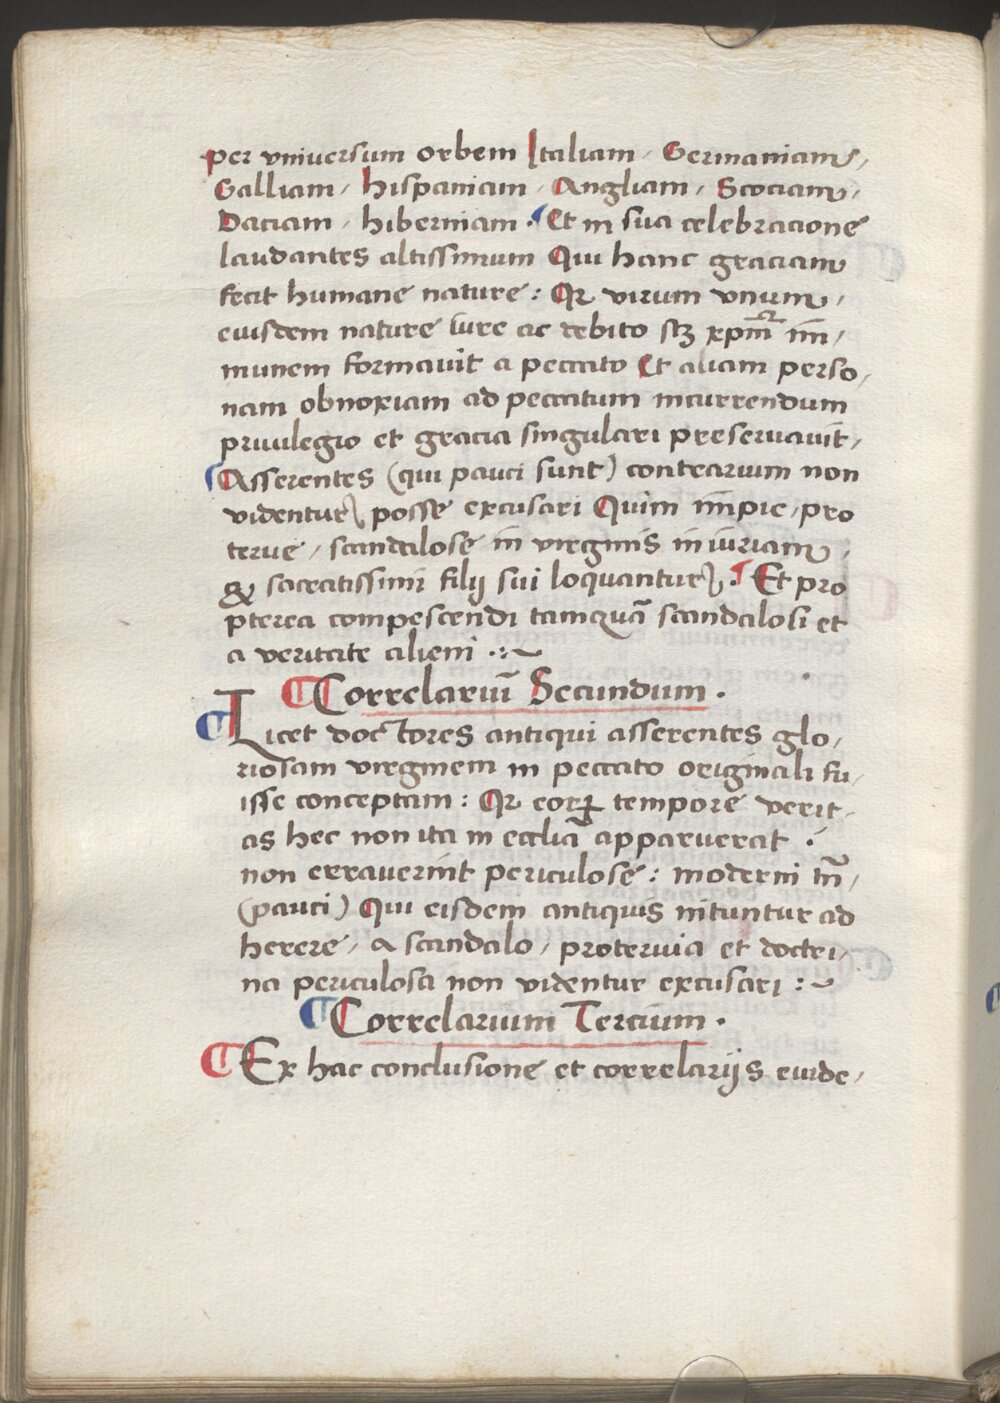 per vniuersum orbem Italiam / Germaniam /
Galliam / hispaniam / Angliam / Scociam /
Daciam / hiberniam . Et in sua celebracione
laudantes altissimum Qui hanc graciam
fecit humane nature : Qꝛ virum vnum /
eiusdem nature iure ac debito sꝫ xp̄m im̄/
munem formauit a peccato Et aliam perso/
nam obnoxiam ad peccatum incurrendum
priuilegio et gracia singulari preseruauit /
Asserentes (qui pauci sunt) contrarium non
videntur posse excusari Quin im̄pie / pro
terue / scandalose in virginis iniuriam /
& sacratissimi filij sui loquantur . Et pro
pterea compescendi tamquā scandalosi et
a veritate alieni .:~
Correlariū Secundum .
Licet doctores antiqui asserentes glo/
riosam virginem in peccato originali fu/
isse conceptam : Qꝛ eoꝝ tempore verit/
as hec non ita in eccliā apparuerat .
non errauerint periculose : moderni tn̄ /
(pauci) Qui eisdem antiquis nituntur ad
herere / a scandalo / proteruia et doctri/
na periculosa non videntur excusari :~
Correlarium Tercium .
Ex hac conclusione et correlarijs euide/